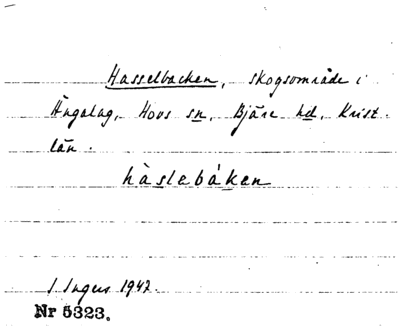 Hasselbacken, skogsområde i
Ängalag, Hovs sn, Bjäre hd, Krist.
län.
hàslebáken
I. Ingers 1942.
Nr 5323.